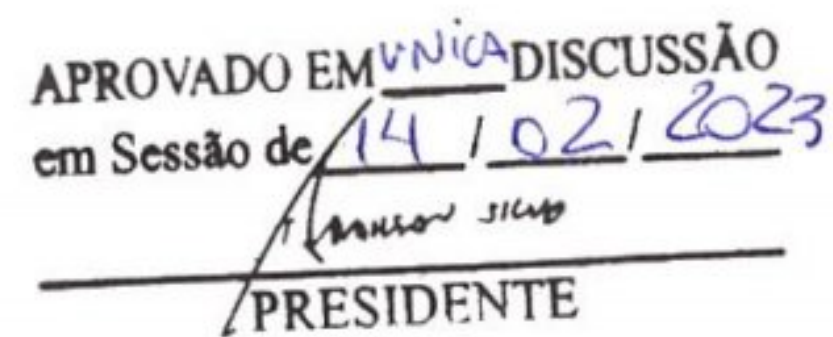 APROVADO EM UNICA DISCUSSÃO
em Sessão de 14 / 02 / 2023
SILVA
PRESIDENTE